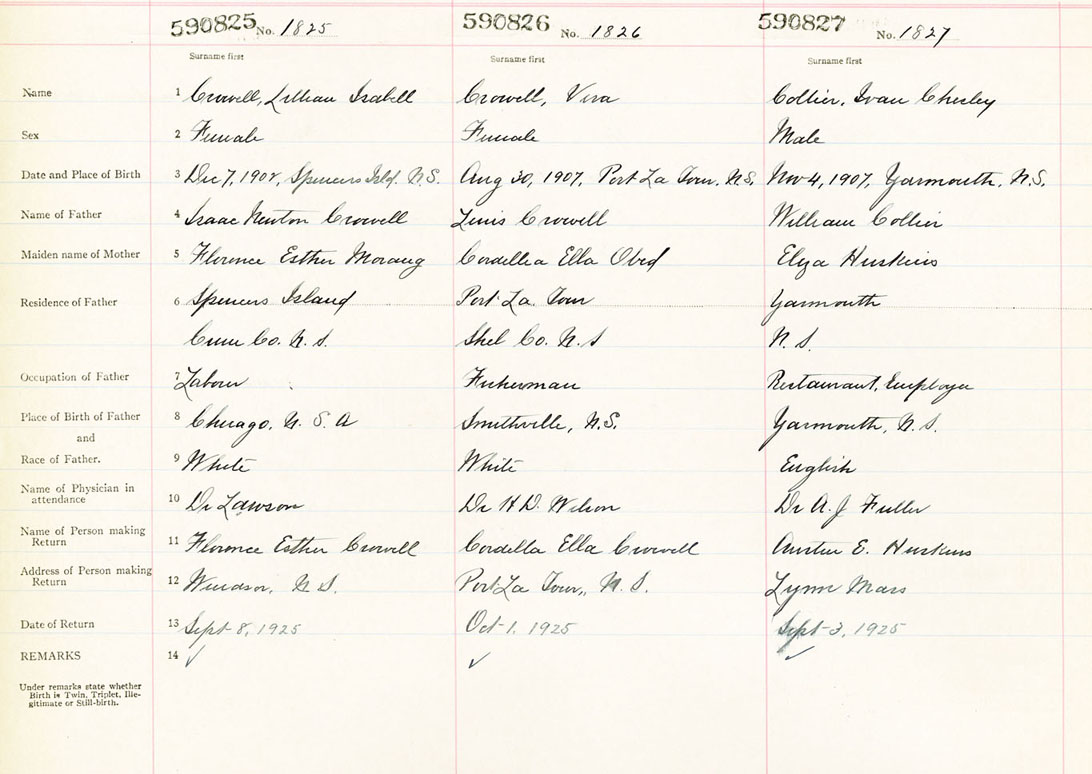 590825 No. 1825 590826 No. 1826 590827 No. 1827
Surname first Surname first Surname first
Name 1 Crowell, Lillian Isabell Crowell, Vira Collier, Ivan Chesley
Sex 2 Female Female Male
Date and Place of Birth 3 Dec 7, 1908, Spencers Isld. N.S. Aug 30, 1907, Port La Tour, N.S. Nov 4, 1907, Yarmouth, N.S.
Name of Father 4 Isaac Newton Crowell Lewis Crowell William Collier
Maiden name of Mother 5 Florence Esther Morang Cordellia Ella Obed Elza Huskins
Residence of Father 6 Spencers Island Port La Tour Yarmouth
Cum Co. N.S. Shel Co. N.S N.S.
Occupation of Father 7 Labour Fisherman Restaurant, Employee
Place of Birth of Father 8 Chicago, U.S.A Smithville, N.S. Yarmouth, N.S.
and
Race of Father. 9 White White English
Name of Physician in
attendance 10 Dr Lawson Dr H.D. Wilson Dr A.J Fuller
Name of Person making
Return 11 Florence Esther Crowell Cordella Ella Crowell Austin E. Huskins
Address of Person making
Return 12 Windsor, N.S. Port La Tour, N.S. Lynn Mass
Date of Return 13 Sept 8, 1925 Oct 1, 1925 Sept 3, 1925
REMARKS 14 ✓ ✓ ✓
Under remarks state whether
Birth is Twin, Triplet, Ille-
gitimate or Still-birth.